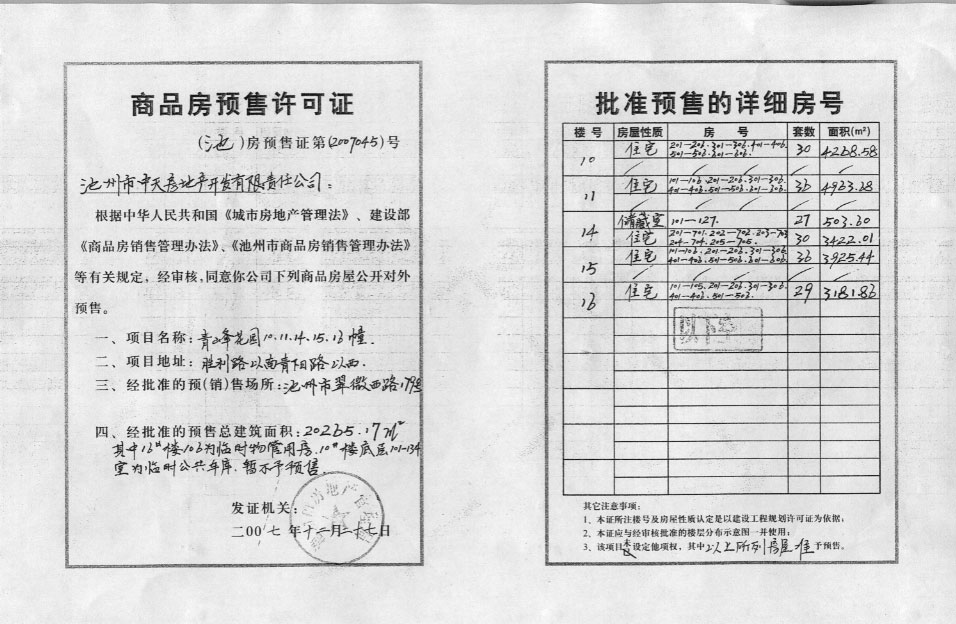 商品房预售许可证
(池)房预售证第(2007045)号
池州市中天房地产开发有限责任公司:
根据中华人民共和国《城市房地产管理法》、建设部
《商品房销售管理办法》、《池州市商品房销售管理办法》
等有关规定,经审核,同意你公司下列商品房屋公开对外
预售。
一、项目名称:青峰花园10.11.14.15.16幢.
二、项目地址:胜利路以南青阳路以西.
三、经批准的预(销)售场所:池州市翠微西路179号
四、经批准的预售总建筑面积:20265.17㎡
其中16#楼106为临时物管用房.10#楼底层101-134
室为临时公共车库.暂不予预售.
发证机关:
二00七年十二月二十七日
批准预售的详细房号
楼号 房屋性质 房号 套数 面积(m²)
10 住宅 201-206.301-306.401-406. 501-506.601-606. 30 4268.58
11 住宅 101-106.201-206.301-306. 401-406.501-506.601-606. 36 4963.28
14 储藏室 101-127. 27 503.60
住宅 201-701.202-702.203-703 204-704.205-705. 30 3422.01
15 住宅 101-106.201-206.301-306. 401-406.501-506.601-606. 36 3925.44
16 住宅 101-105.201-206.301-306. 401-406.501-506. 29 3181.86
以下空
其它注意事项:
1、本证所注楼号及房屋性质认定是以建设工程规划许可证为依据;
2、本证应与经审核批准的楼层分布示意图一并使用;
3、该项目未设定他项权,其中以上所列房屋准予预售。